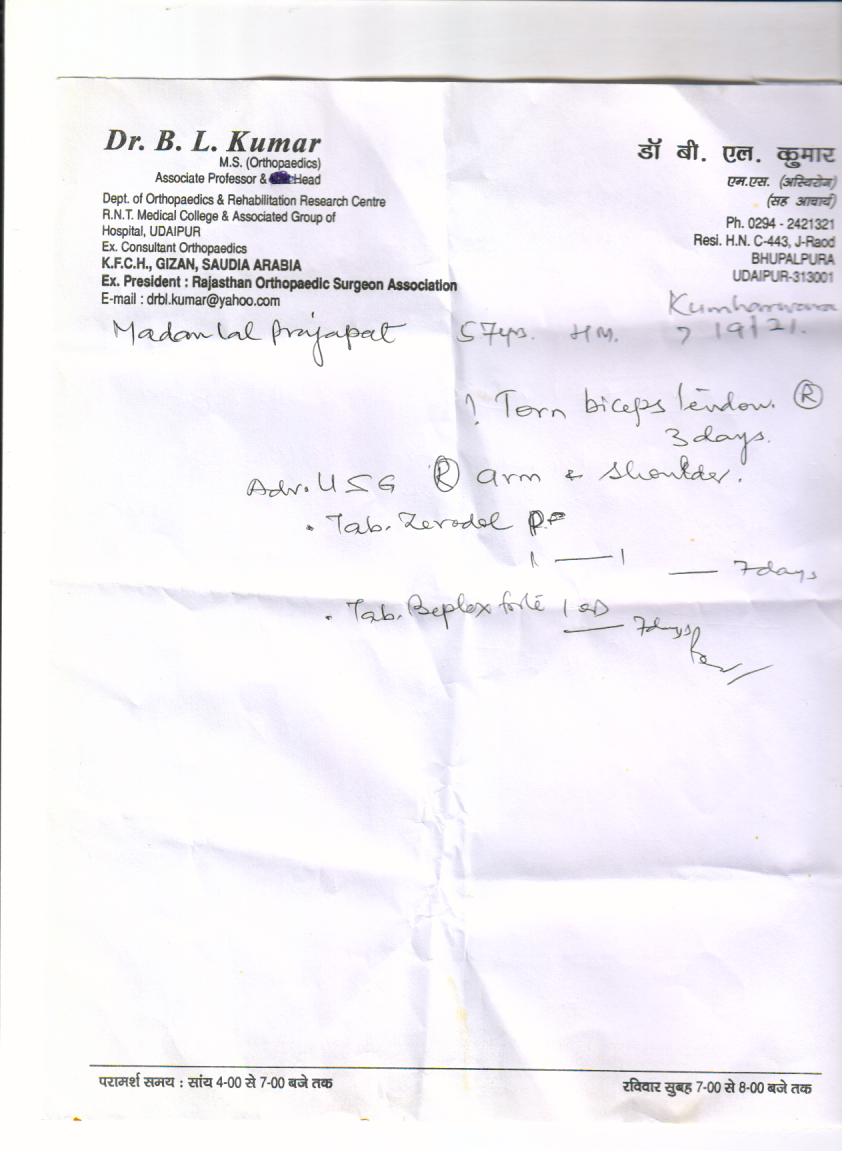 Dr. B. L. Kumar
M.S. (Orthopaedics)
Associate Professor & Head
Dept. of Orthopaedics & Rehabilitation Research Centre
R.N.T. Medical College & Associated Group of
Hospital, UDAIPUR
Ex. Consultant Orthopaedics
K.F.C.H., GIZAN, SAUDIA ARABIA
Ex. President : Rajasthan Orthopaedic Surgeon Association
E-mail : drbl.kumar@yahoo.com
डॉ बी. एल. कुमार
एम.एस. (अस्थिरोग)
(सह आचार्य)
Ph. 0294 - 2421321
Resi. H.N. C-443, J-Raod
BHUPALPURA
UDAIPUR-313001
Kumharwara
Madan lal Prajapat 57yrs. HM. 7/9/21.
? Torn biceps tendon. Ⓡ
3 days.
Adv. USG Ⓡ arm & shoulder.
. Tab. Zerodol P
1 — 1 — 7days
. Tab. Beplex forte 1 OD
— 7days
परामर्श समय : सांय 4-00 से 7-00 बजे तक
रविवार सुबह 7-00 से 8-00 बजे तक